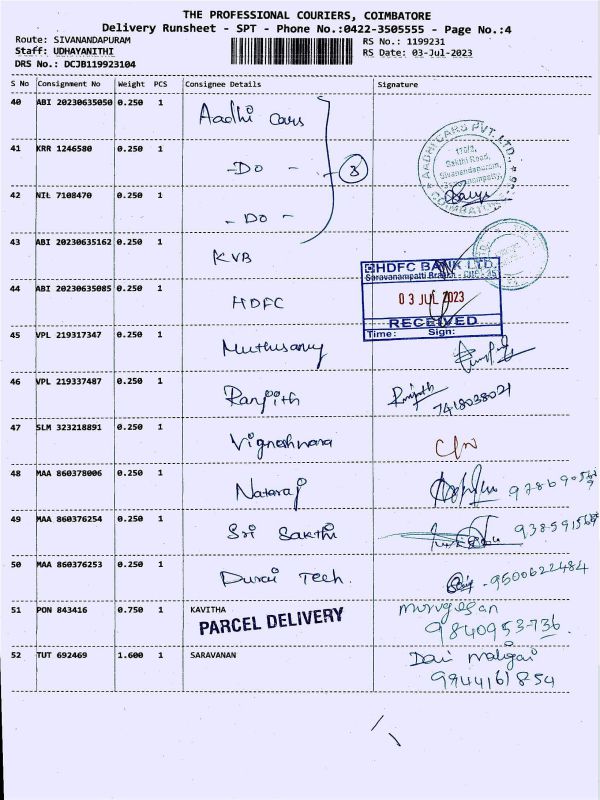 THE PROFESSIONAL COURIERS, COIMBATORE
Delivery Runsheet - SPT - Phone No.:0422-3505555 - Page No.:4
Route: SIVANANDAPURAM RS No.: 1199231
Staff: UDHAYANITHI RS Date: 03-Jul-2023
DRS No.: DCJB119923104
S No Consignment No Weight PCS Consignee Details Signature
40 ABI 20230635050 0.250 1 Aadhi Cars
41 KRR 1246580 0.250 1 -Do - 3
AADHI CARS PVT. LTD.
170/2,
Sakthi Road,
Sivanandapuram,
COIMBATORE
42 NIL 7108470 0.250 1 - Do -
43 ABI 20230635162 0.250 1 KVB
HDFC BANK LTD.
Saravanampatti Branch
44 ABI 20230635085 0.250 1 HDFC
03 JUL 2023
RECEIVED
Time: Sign:
45 VPL 219317347 0.250 1 Muthusamy
46 VPL 219337487 0.250 1 Ranjith Ranjith
7418038021
47 SLM 323218891 0.250 1 Vigneshwara
48 MAA 860378006 0.250 1 Nataraj
49 MAA 860376254 0.250 1 Sri Sakthi
50 MAA 860376253 0.250 1 Durai Tech. - 9500622484
51 PON 843416 0.750 1 KAVITHA Murugesan
PARCEL DELIVERY 9840953736.
52 TUT 692469 1.600 1 SARAVANAN
9944161854